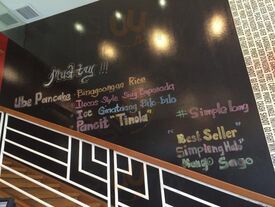 Must try !!!
Ube Pancake
Binagoongan Rice
Ilocos Style Empanada
Ice Ginataang Bilo-bilo
Pancit "Tinola"
# Simple lang
"Best Seller"
Simpleng Halo
Mango Sago